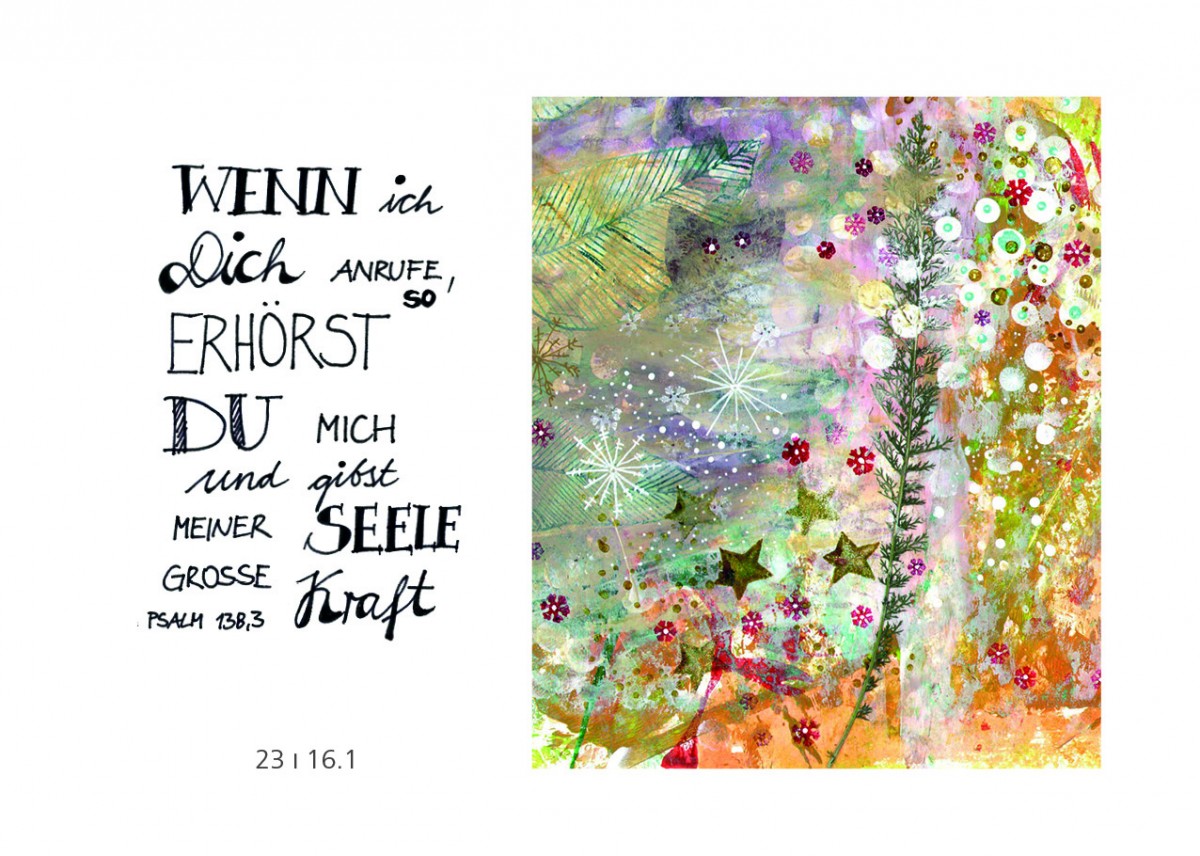 WENN ich
Dich ANRUFE,
so
ERHÖRST
DU MICH
und gibst
MEINER SEELE
GROSSE Kraft
PSALM 138,3
23 ı 16.1